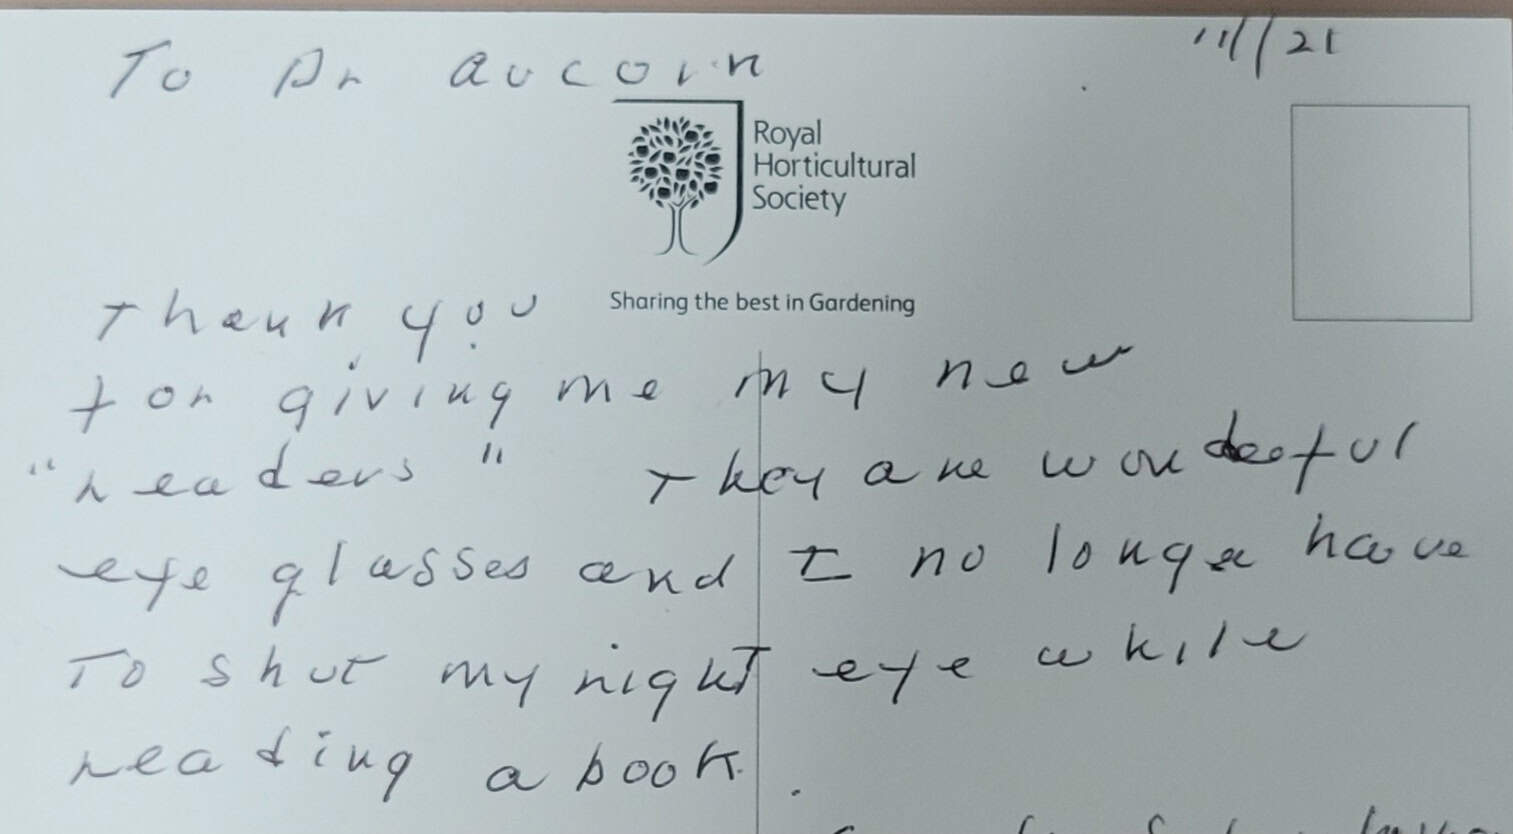 11/21
To Dr aucoin
Royal
Horticultural
Society
Sharing the best in Gardening
Thank you
for giving me my new
"readers" They are wonderful
eye glasses and I no longe have
To shut my right eye while
reading a book.